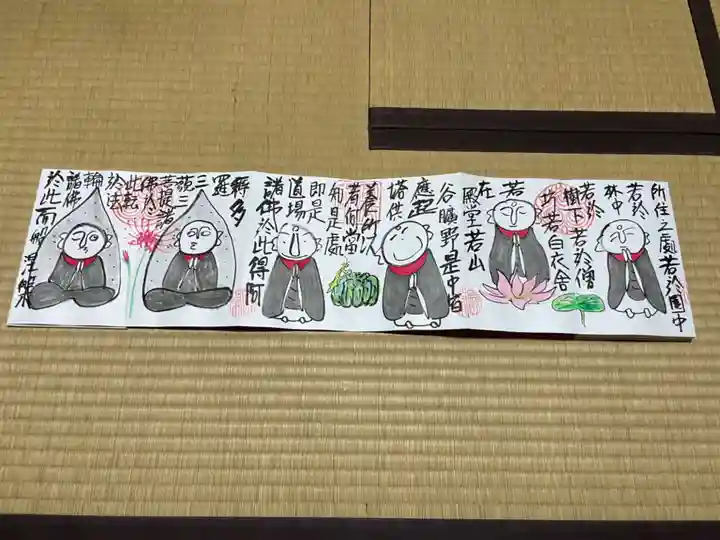 所住之處若於園中
若於
林中
若於
樹下若於僧
坊若白衣舍
若
在
殿堂若山
谷曠野是中皆
應起
塔供
養所以
者何當
知是處
即是
道場
諸佛於此得阿
耨多
羅
三
藐三
菩提諸
佛於
此転
於法
輪
諸佛
於此而般涅槃